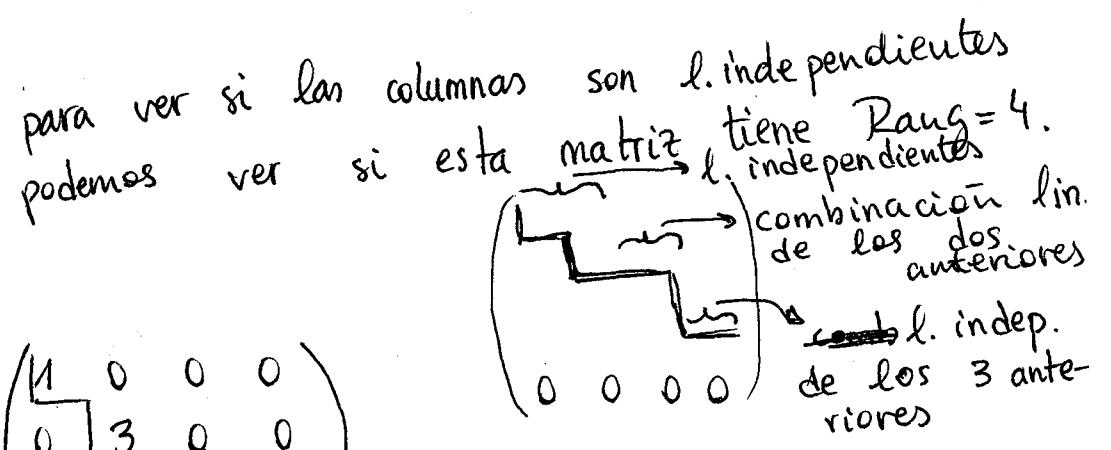 para ver si las columnas son l. independientes
podemos ver si esta matriz tiene Rang = 4.
l. independientes
combinación lin.
de los dos
anteriores
l. indep.
de los 3 ante-
riores
0 0 0 0
1 0 0 0
0 3 0 0